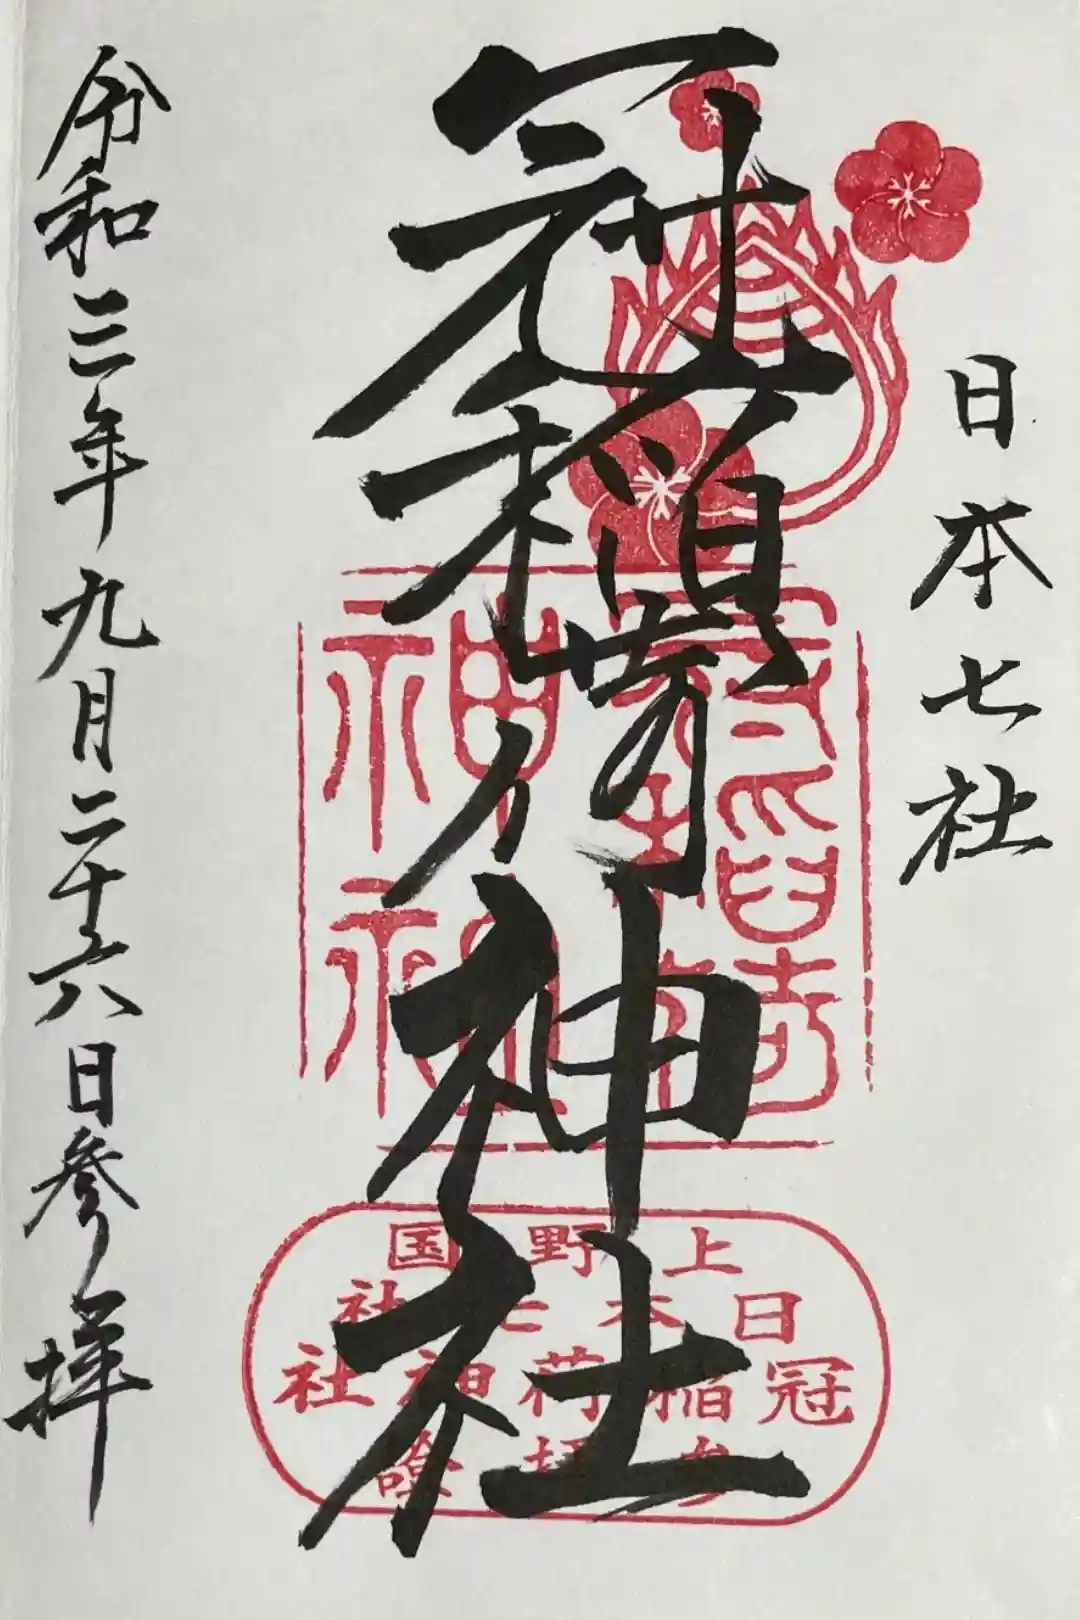 日本七社
冠稲荷神社
令和三年九月二十六日参拝
冠稲荷
神社
上野国
日本七社
冠稲荷神社
参拝證